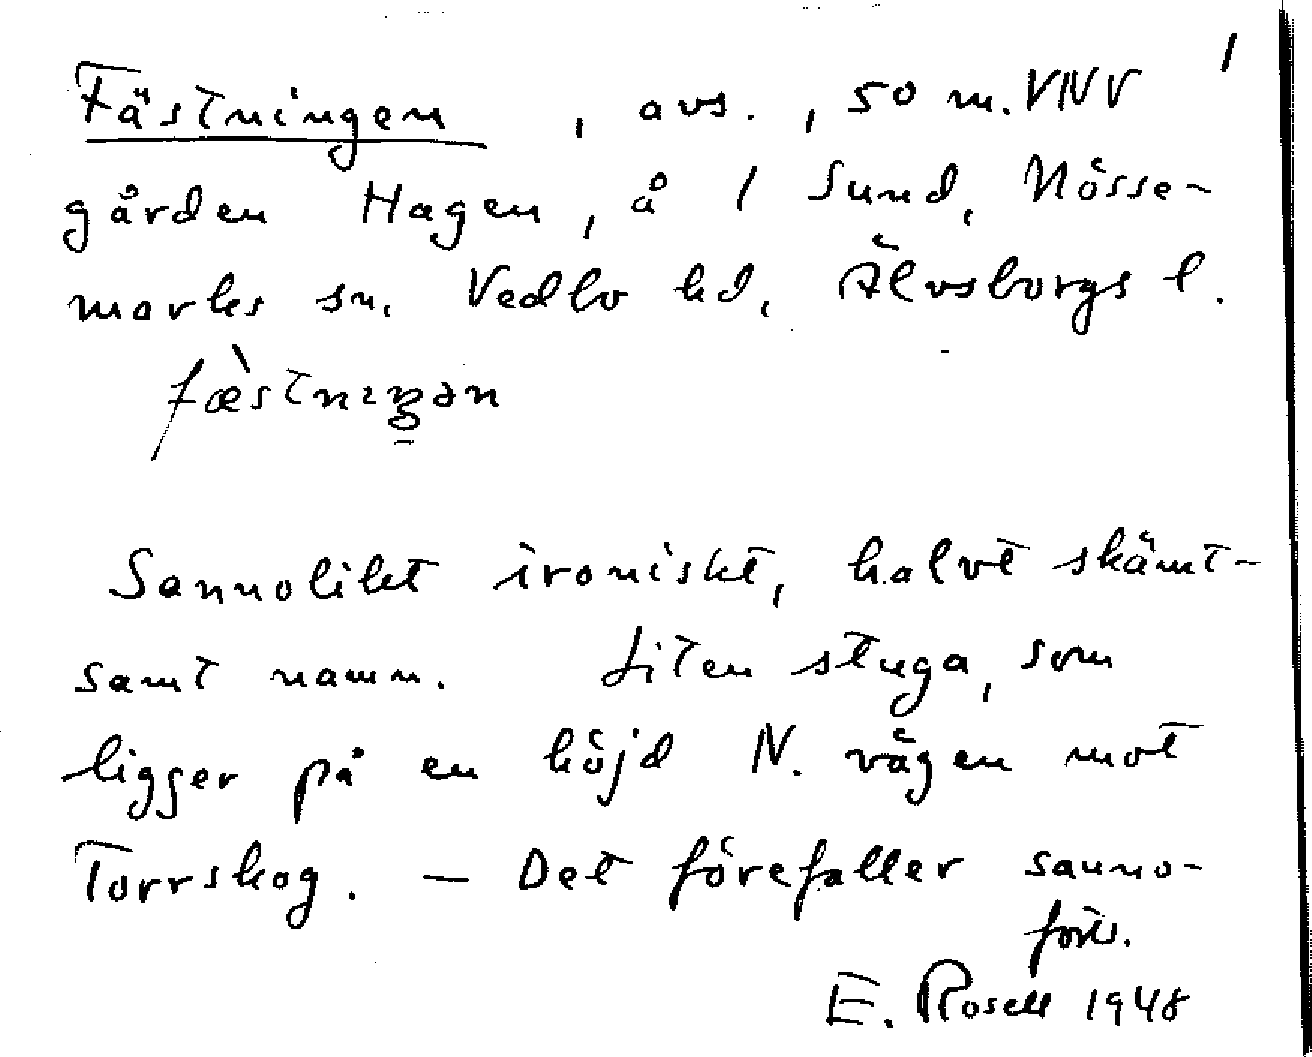 1
Fästningen, avs., 50 m. VNV
gården Hagen, å 1 Sund, Nösse-
marks sn. Vedbo hd, Älvsborgs l.
fæ̀stnıŋən
Sannolikt ironiskt, halvt skämt-
samt namn. Liten stuga, som
ligger på en höjd N. vägen mot
Torrskog. — Det förefaller sanno-
forts.
E. Rosell 1948